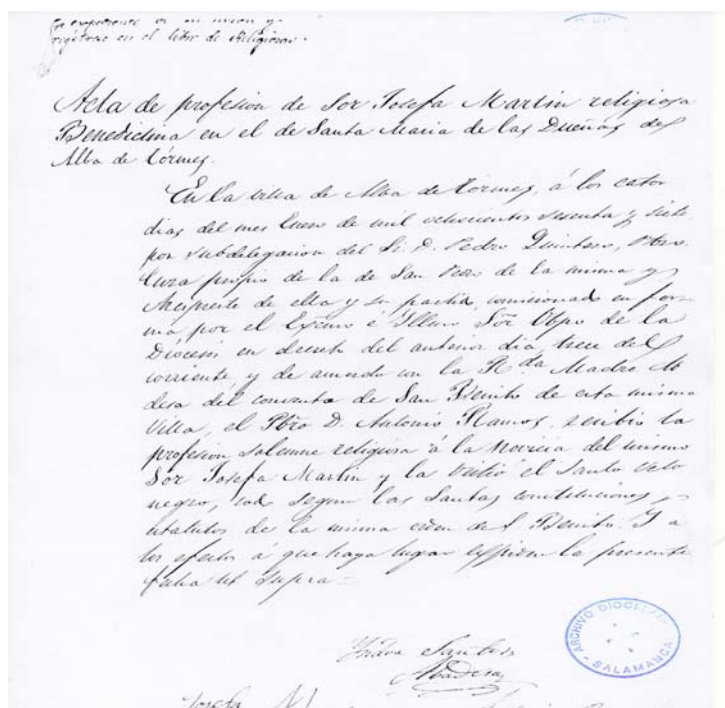 expediente de su union y
registrese en el libro de Religiosas.
Acta de profesion de Sor Josefa Martin religiosa
Benedictina en el de Santa Maria de las Dueñas de
Alba de Tórmes.
En la villa de Alba de Tormes, á los cator
dias del mes Enero de mil ochocientos sesenta y siete
por subdelegacion del Sr. D. Pedro Quintero, Pbro.
Cura propio de la de San Pedro de la misma y
Arcipreste de ella y su partido, comisionado en for-
ma por el Excmo é Illmo Sor Obpo de la
Diócesis en decreto del anterior dia trece del
corriente, y de acuerdo con la Rda Madre Ab
desa del convento de San Benito de esta misma
Villa, el Pbro D. Antonio Ramos, recibio la
profesion solemne religiosa á la Novicia del mismo
Sor Josefa Martin y la vistió el Santo velo
negro, todo segun las Santas constituciones y
estatutos de la misma orden de S. Benito. Y a
los efectos á que haya lugar espiden la presente
fecha ut supra =
Santos
Abadesa
ARCHIVO DIOCESANO
- SALAMANCA -
Josefa M